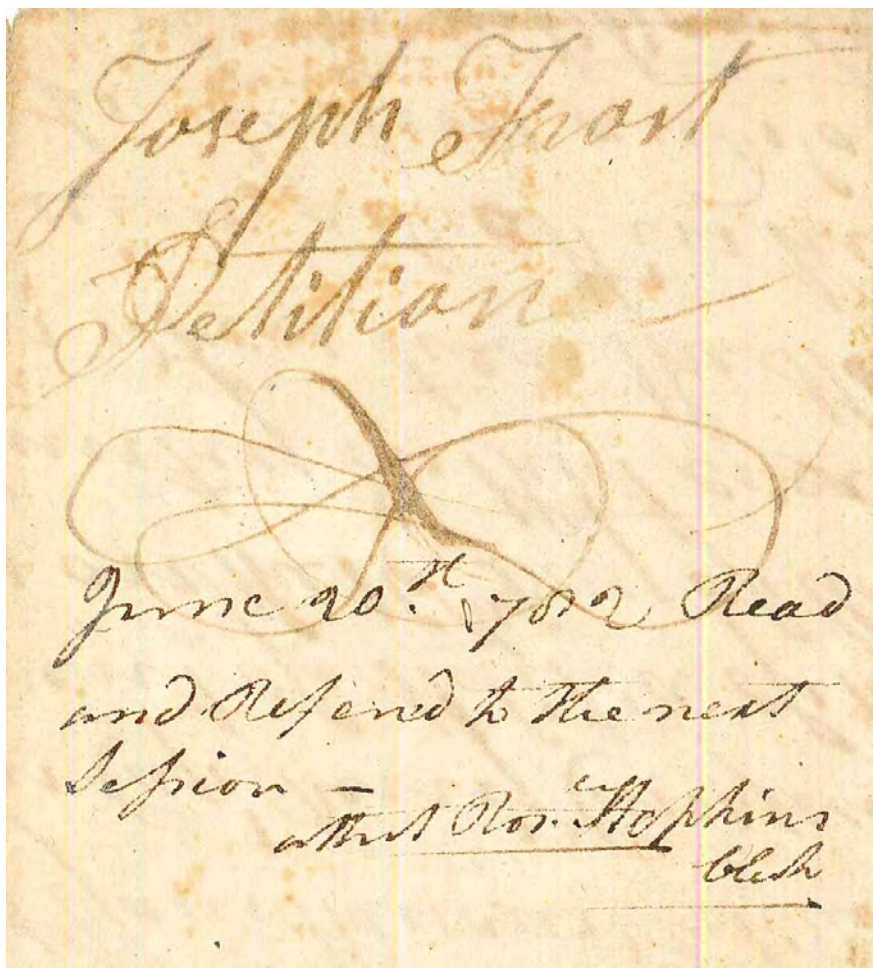 Joseph Frost
Petition
June 20th 1782 Read
and Refered to the next
Session —
attest Ros.ell Hopkins
Clerk